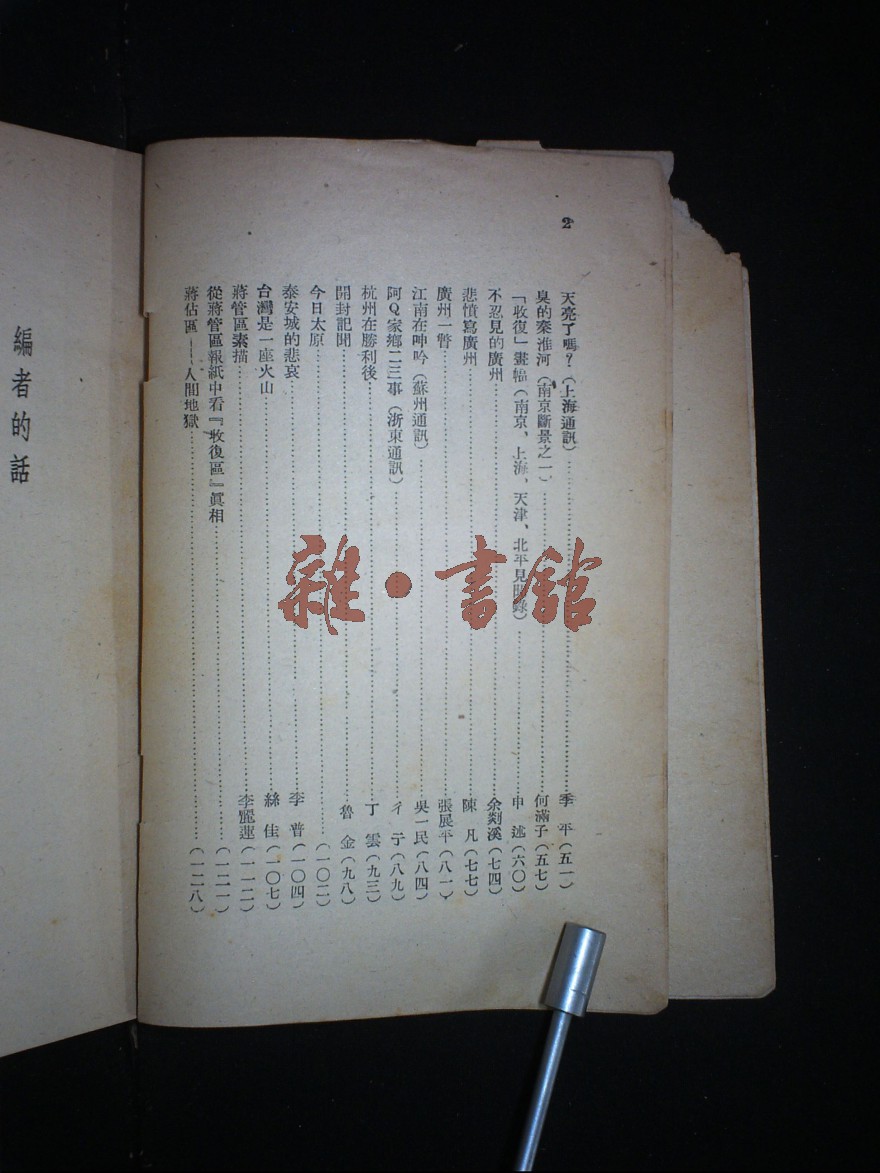 2
天亮了嗎?(上海通訊)……季 平(五一)
臭的秦淮河(南京斷景之一)……何滿子(五七)
「收復」畫幅(南京、上海、天津、北平見聞錄)……申 述(六〇)
不忍見的廣州……余剡溪(七四)
悲憤寫廣州……陳 凡(七七)
廣州一瞥……張展平(八一)
江南在呻吟(蘇州通訊)……吳一民(八四)
阿Q家鄉二三事(浙東通訊)……彳 亍(八九)
杭州在勝利後……丁 雲(九三)
開封記聞……魯 金(九八)
今日太原……(一〇二)
泰安城的悲哀……李 普(一〇四)
台灣是一座火山……絲 佳(一〇七)
蔣管區素描……李麗蓮(一一二)
從蔣管區報紙中看『收復區』眞相……(一二一)
蔣佔區——人間地獄……(一二八)
編者的話
雜·書館